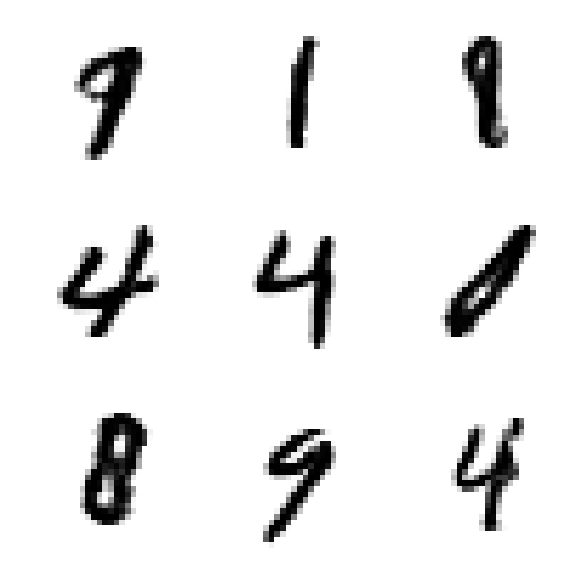 9 1 8
4 4 0
8 9 4